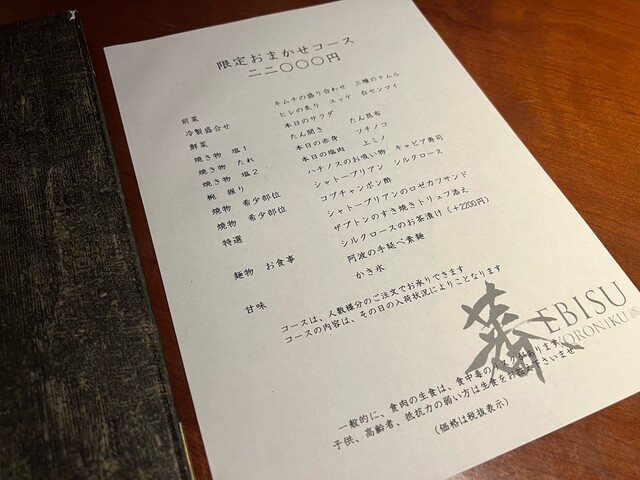 限定おまかせコース
二二〇〇〇円
前菜 キムチの盛り合わせ 三種のナムル
冷製盛合せ ヒレの炙り ユッケ 白センマイ
鮮菜 本日のサラダ
焼き物 塩1 たん開き たん昆布
焼き物 たれ 本日の赤身 ツキノコ
焼き物 塩2 本日の塩肉 上ミノ
椀 握り ハチノスのお吸い物 キャビア寿司
焼物 希少部位 シャトーブリアン シルクロース
焼物 希少部位 コプチャンポン酢
特選 シャトーブリアンのロゼカツサンド
ザブトンのすき焼きトリュフ添え
シルクロースのお茶漬け(+2200円)
麺物 お食事 阿波の手延べ素麺
甘味 かき氷
コースは、人数様分のご注文でお承りできます
コースの内容は、その日の入荷状況によりことなります
蕃 EBISU
YORONIKU
一般的に、食肉の生食は、食中毒のリスクが有ります
子供、高齢者、抵抗力の弱い方は生食をお控え下さいませ
(価格は税抜表示)